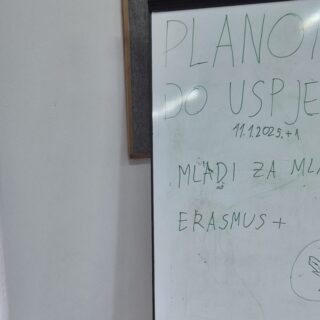 PLANO
DO USPJE
11.1.2025.+1
MLADI ZA MLA
ERASMUS +